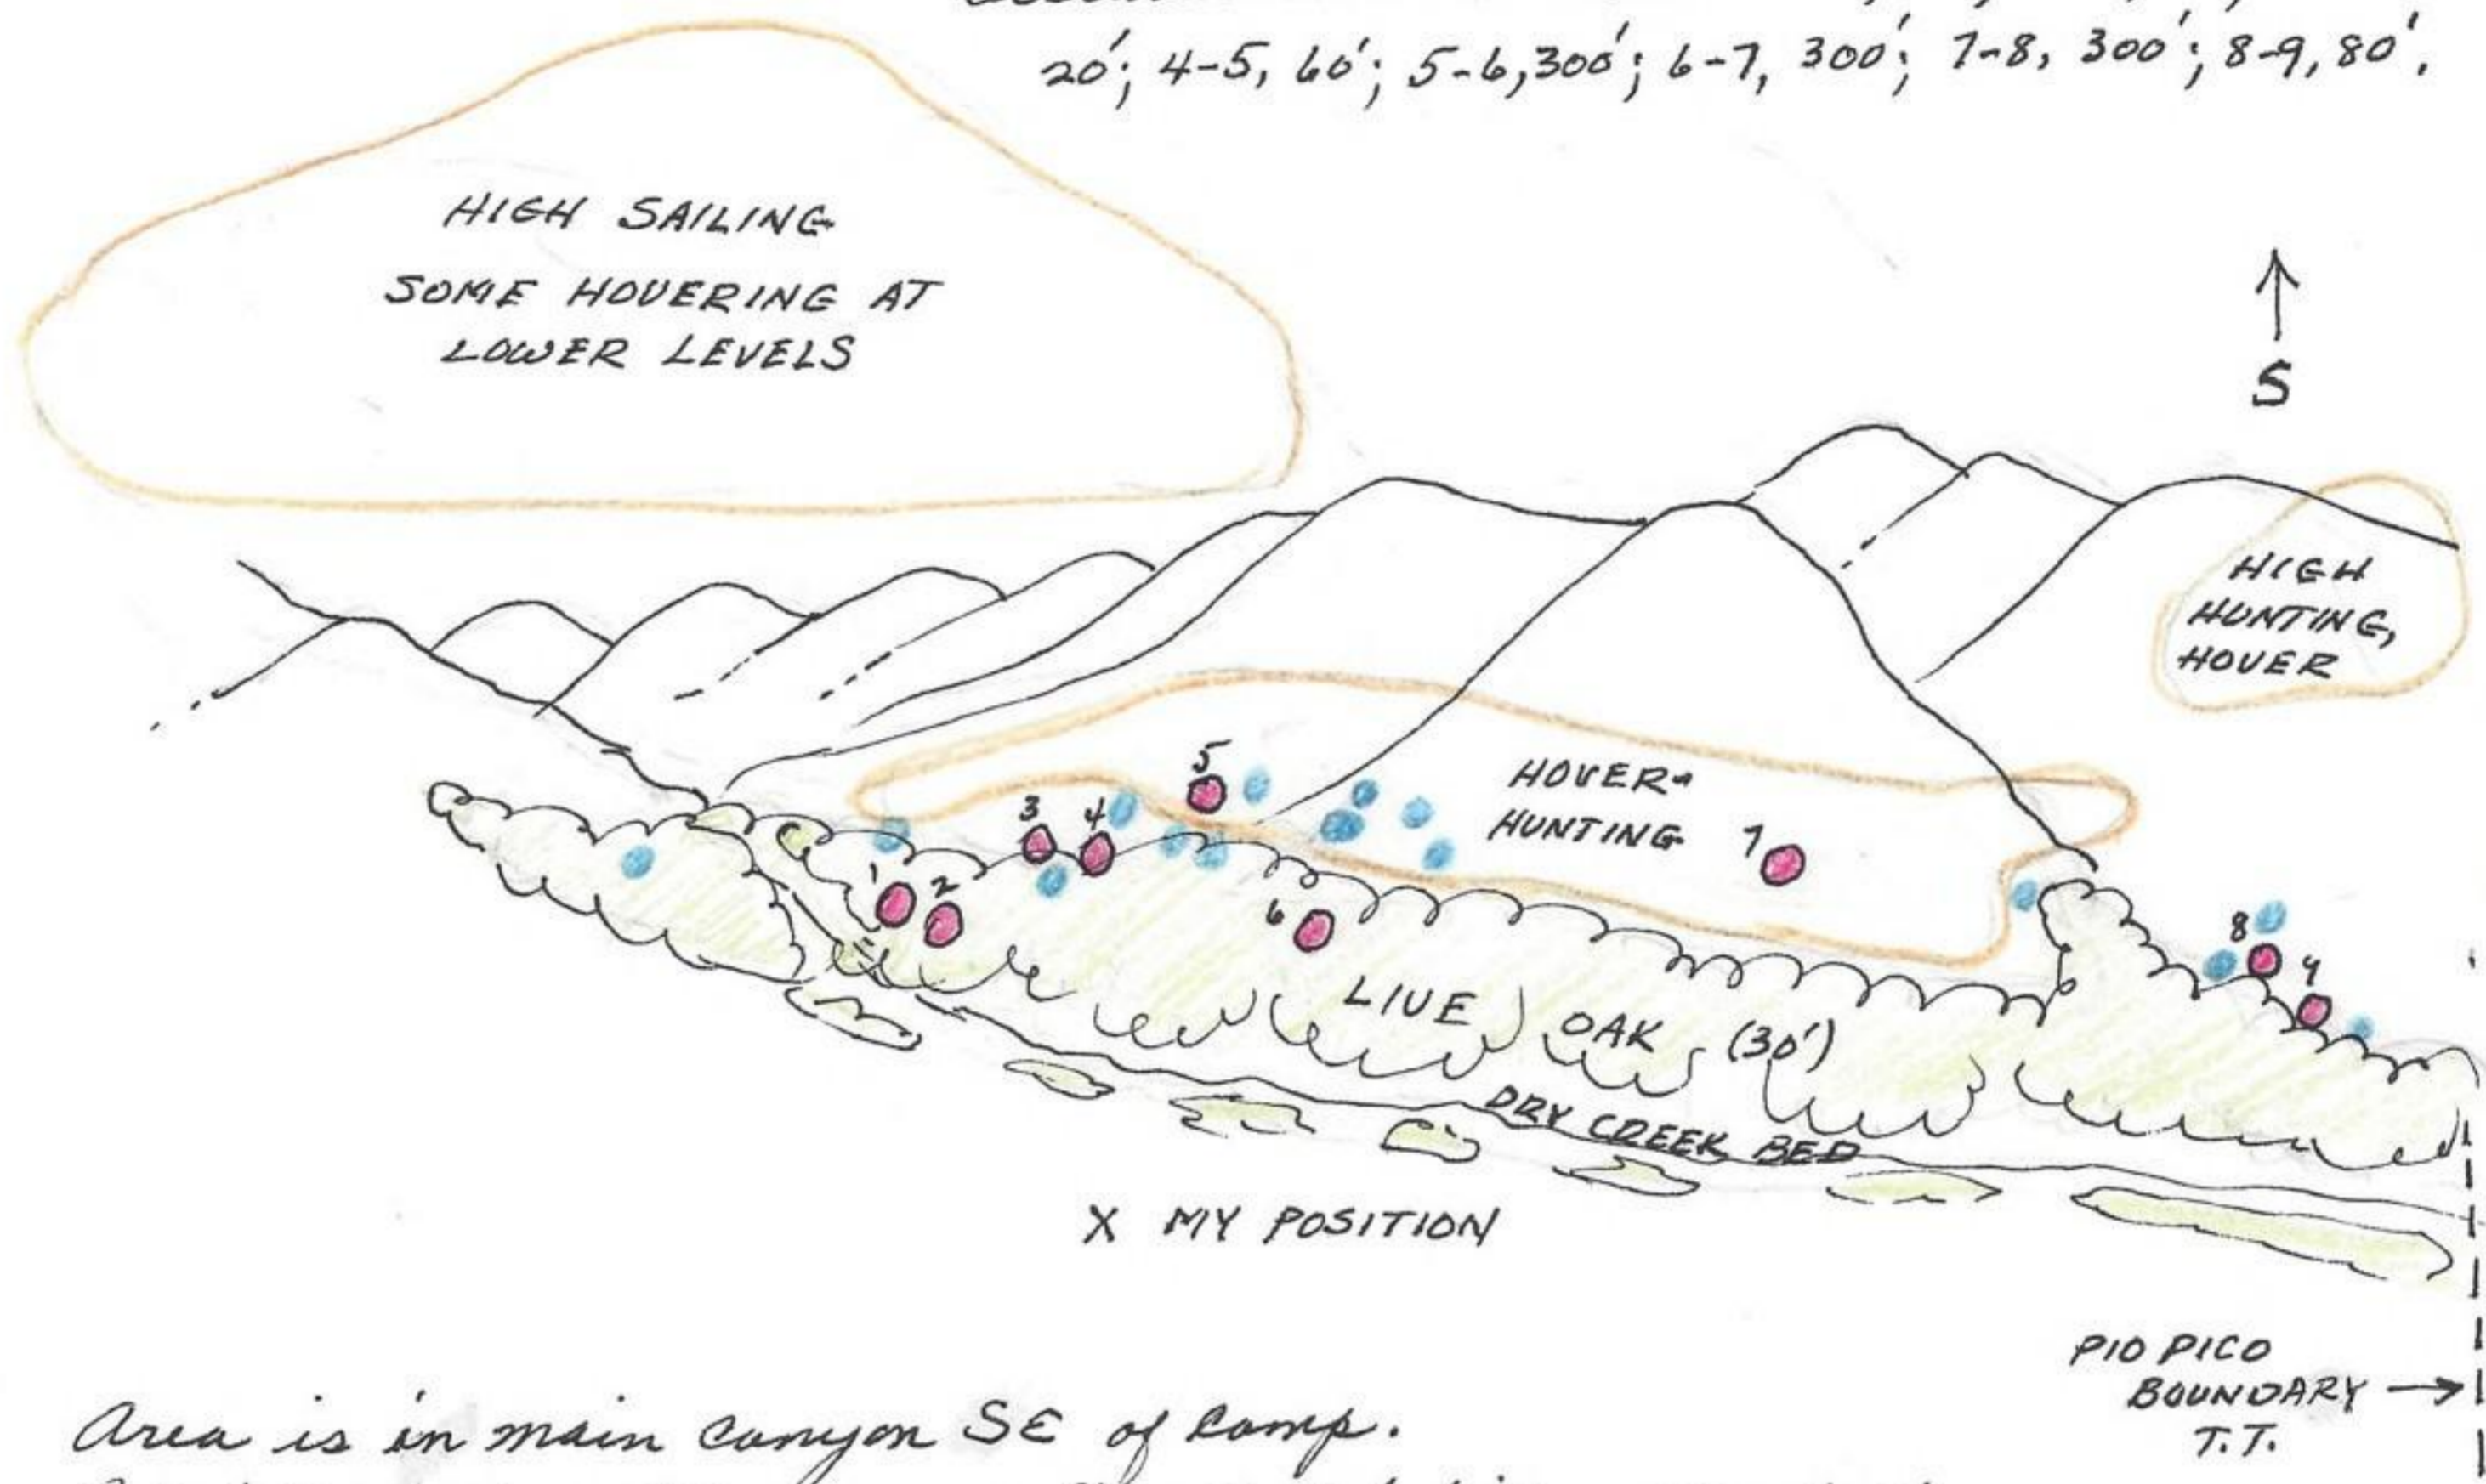 20'; 4-5, 60'; 5-6, 300'; 6-7, 300'; 7-8, 300'; 8-9, 80'.
HIGH SAILING
SOME HOVERING AT
LOWER LEVELS
↑
S
HIGH
HUNTING,
HOVER
5
HOVER-
HUNTING
3
4
7
1
2
6
8
9
LIVE OAK (30')
DRY CREEK BED
X MY POSITION
PIO PICO
BOUNDARY →
T.T.
Area is in main canyon SE of camp.